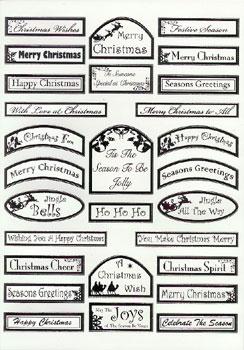 Christmas Wishes
Merry
Christmas
Festive Season
Merry Christmas
To Someone
Special at Christmas
Merry Christmas
Happy Christmas
Seasons Greetings
With Love at Christmas
Merry Christmas to All
Christmas Fun
Tis The
Season To Be
Jolly
Happy Christmas
Merry Christmas
Seasons Greetings
Jingle
Bells
Ho Ho Ho
Jingle
All The Way
Wishing You A Happy Christmas
You Make Christmas Merry
Christmas Cheer
A
Christmas
Wish
Christmas Spirit
Seasons Greetings
May The
Joys
of The Season Be Yours
Merry Christmas
Happy Christmas
Celebrate The Season